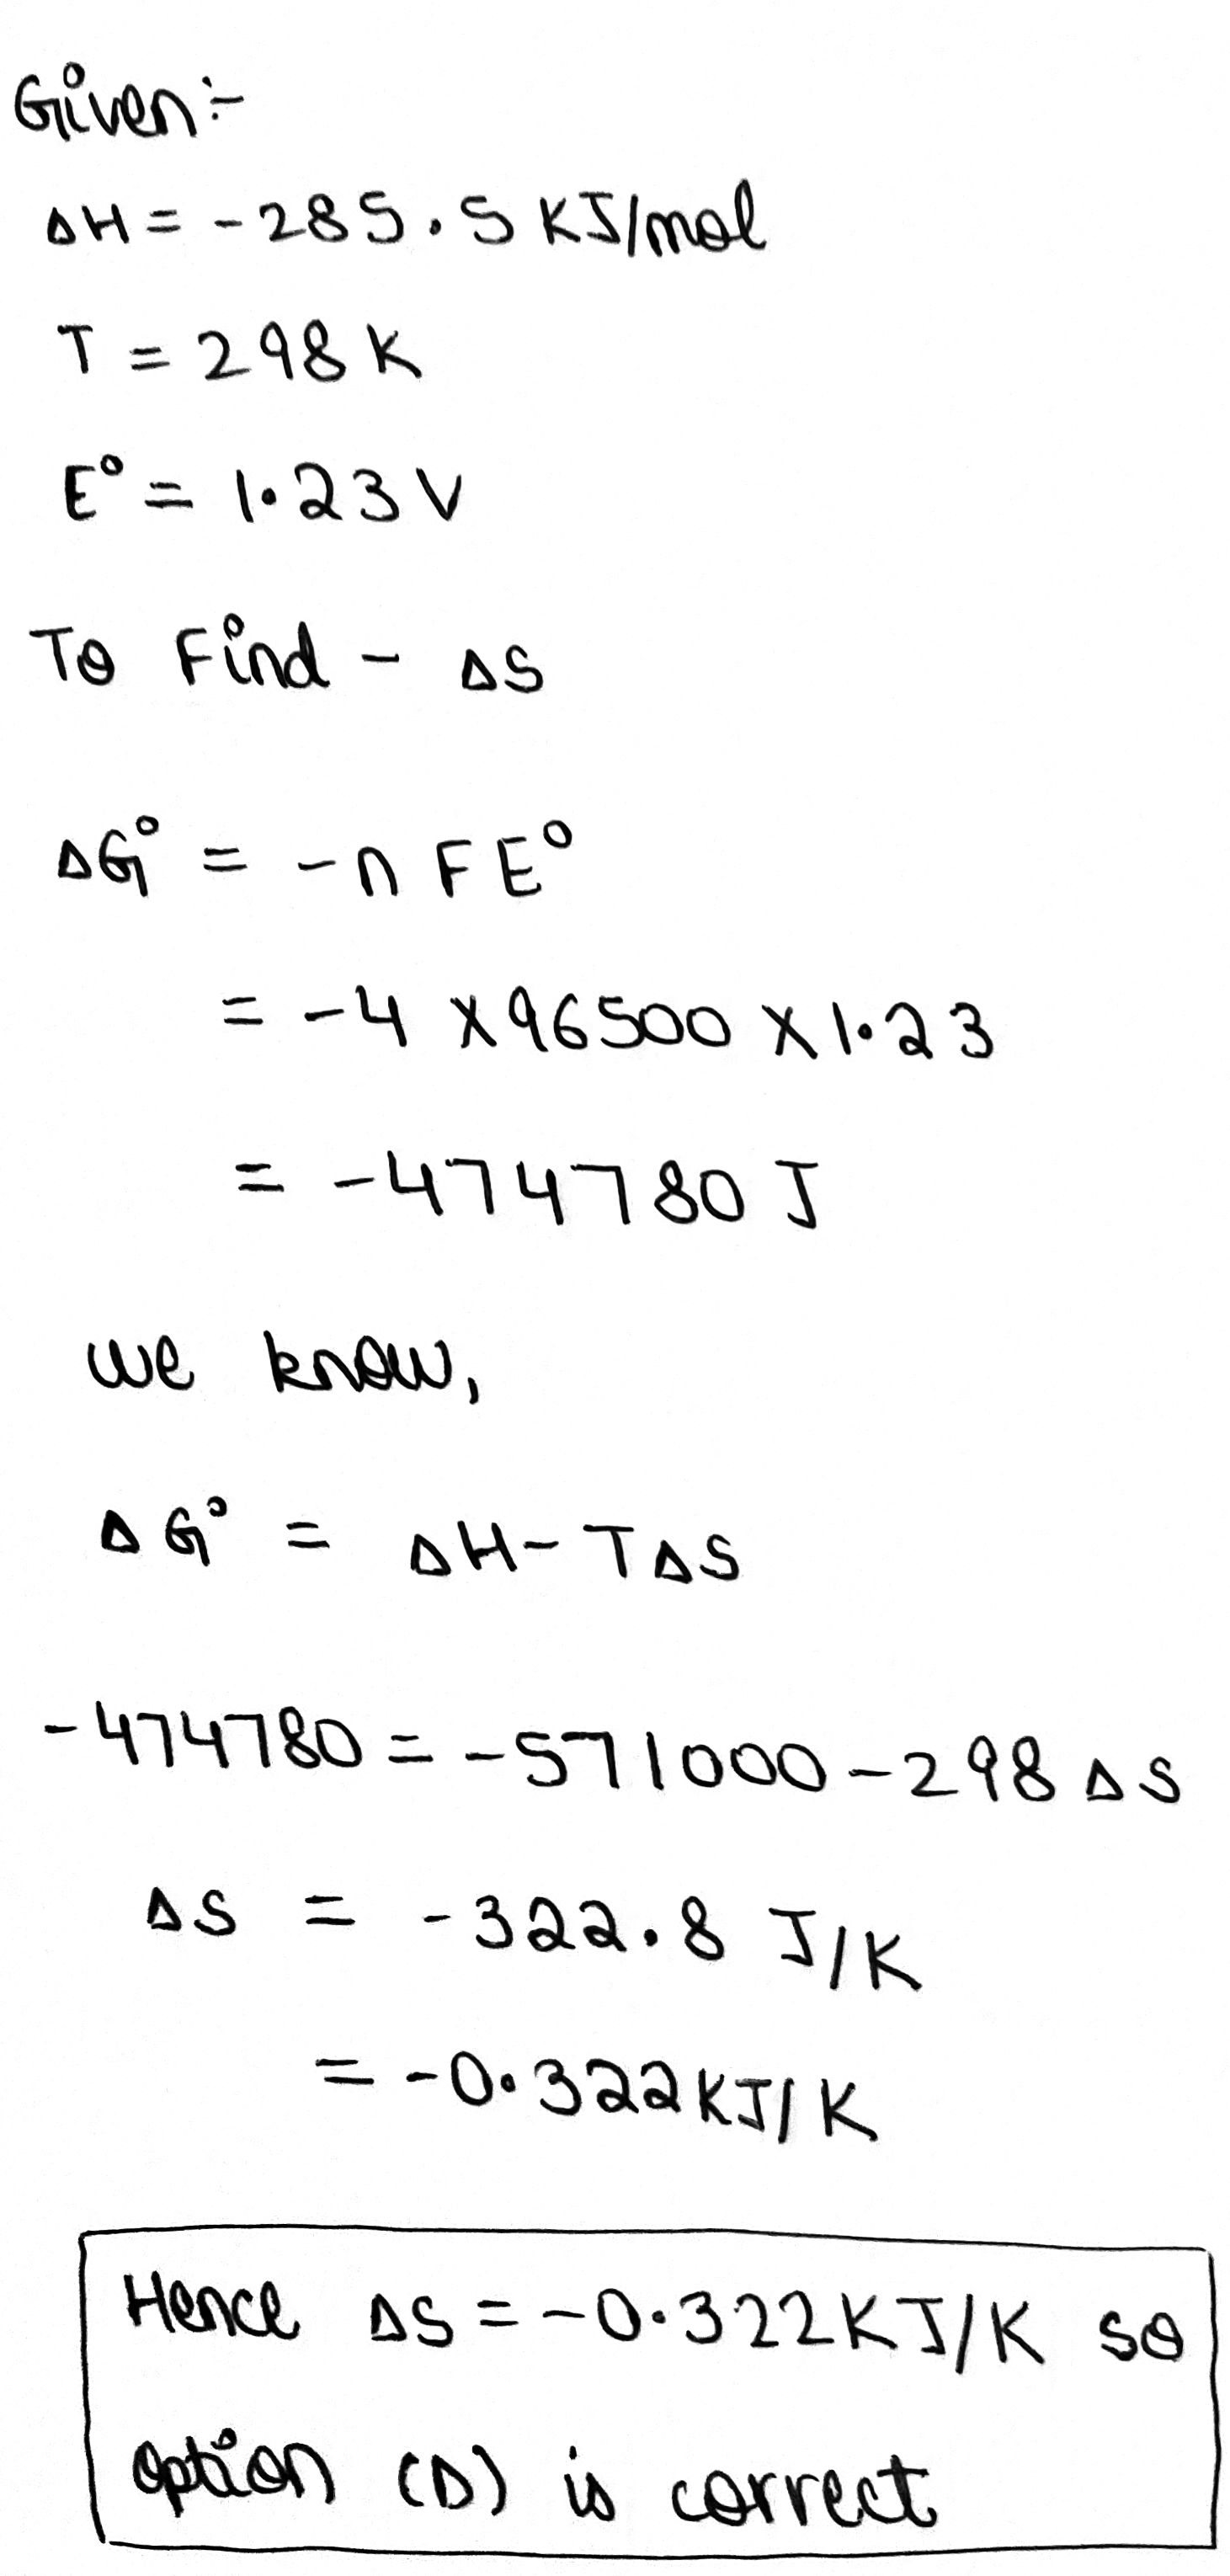 Given:-
ΔH = -285.5 KJ/mol
T = 298 K
E° = 1.23 V
To Find - ΔS
ΔG° = -n F E°
= -4 X 96500 X 1.23
= -474780 J
we know,
ΔG° = ΔH - TΔS
-474780 = -571000 - 298 ΔS
ΔS = -322.8 J/K
= -0.322 KJ/K
Hence ΔS = -0.322 KJ/K so
option (D) is correct